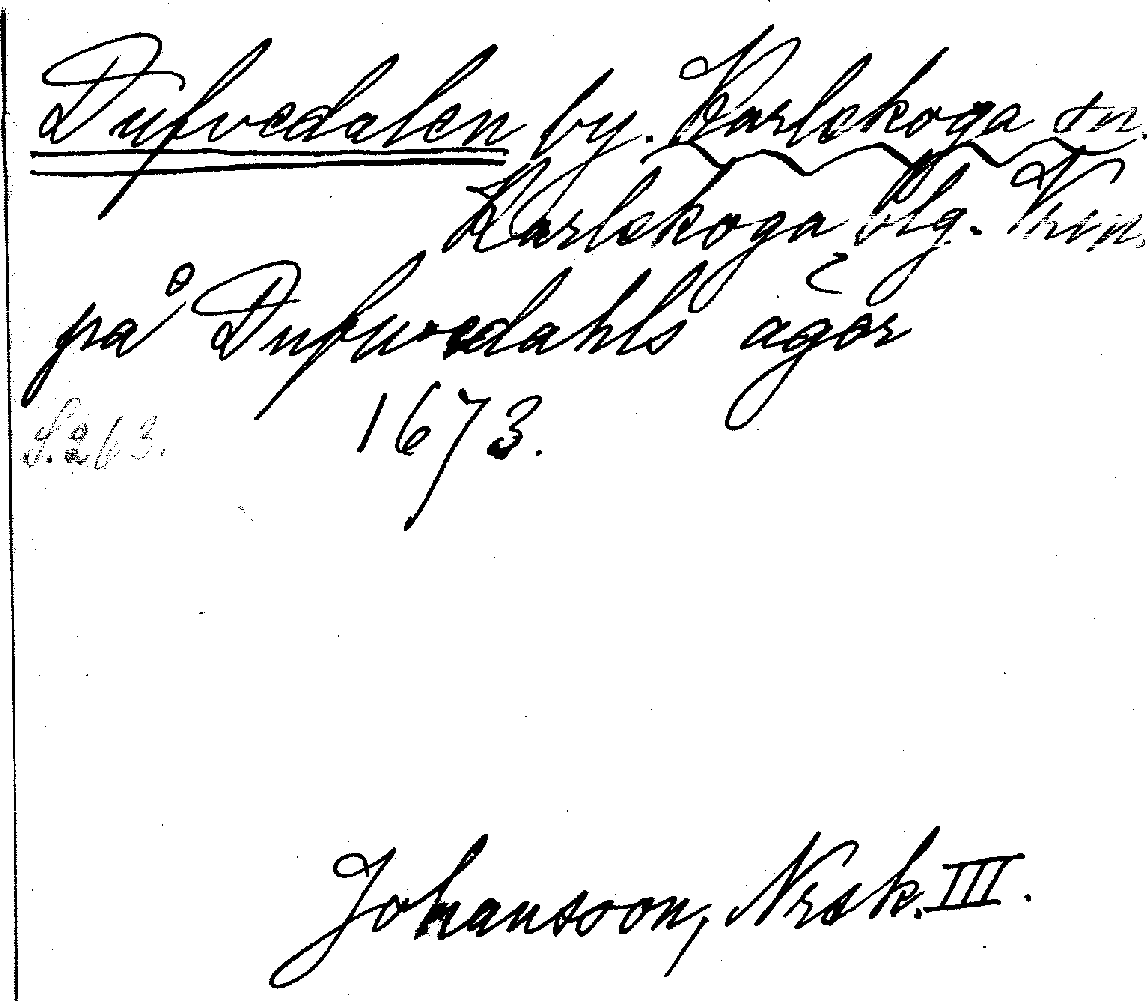 Dufvedalen by. Karlskoga sn.
Karlskoga blg. Vrm.
på Dufwedahls ägor
S. 263. 1673.
Johansson, Nrsk. III.